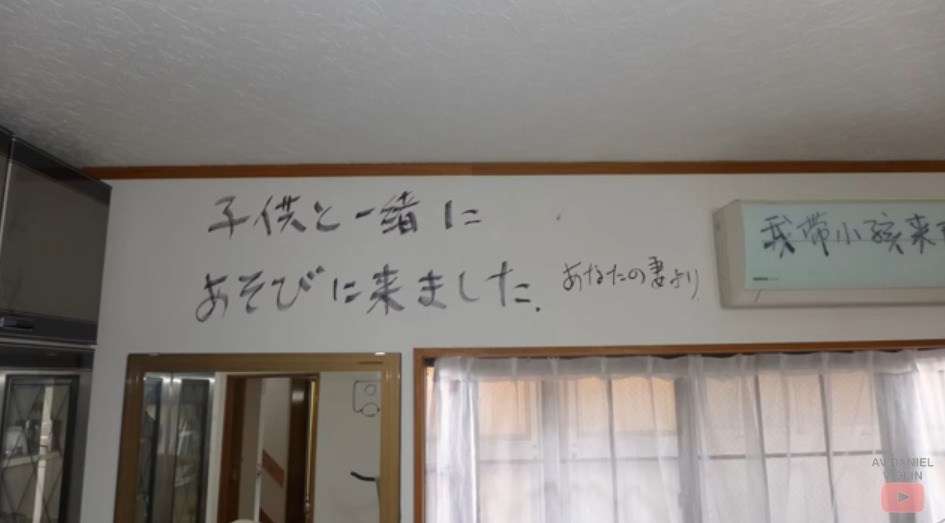 子供と一緒に
あそびに来ました.
あなたの妻より
我带小孩来
AV DANIEL